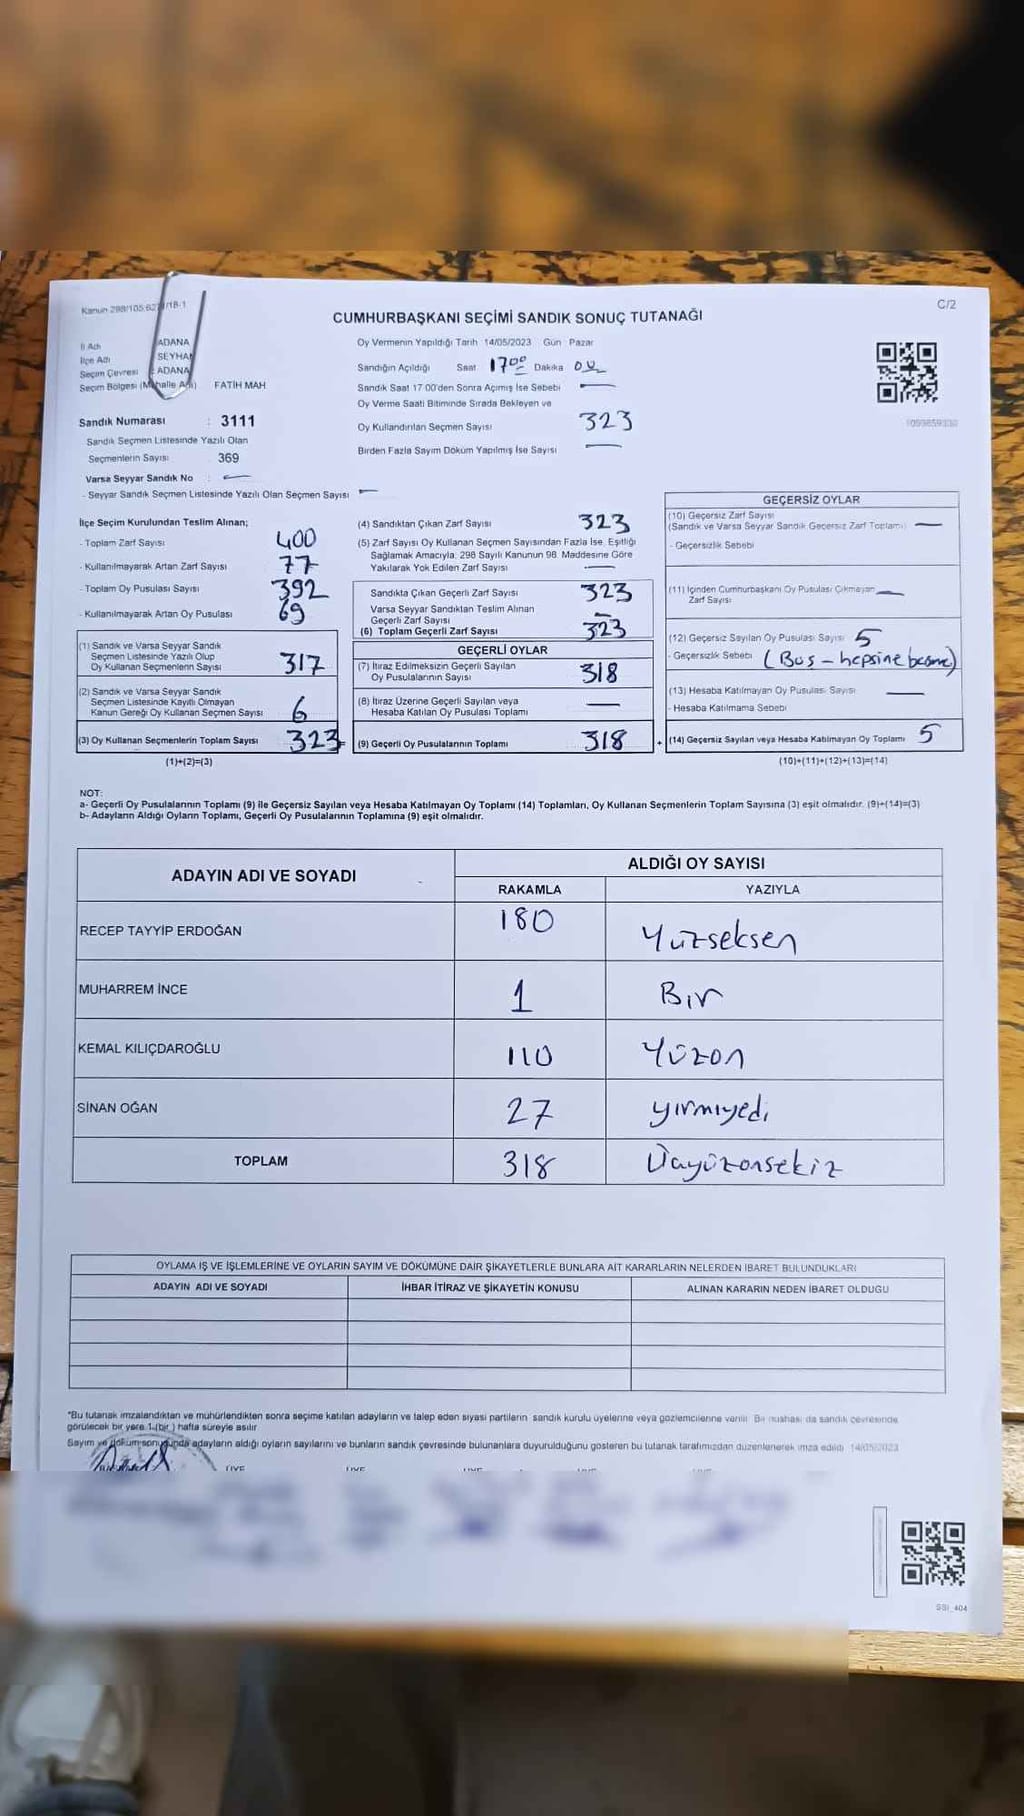 Kanun 298/105;627 /18-1
C/2
CUMHURBAŞKANI SEÇİMİ SANDIK SONUÇ TUTANAĞI
İl Adı ADANA
İlçe Adı SEYHAN
Seçim Çevresi : ADANA
Seçim Bölgesi (Mahalle Adı) FATİH MAH
Oy Vermenin Yapıldığı Tarih 14/05/2023 Gün Pazar
Sandığın Açıldığı Saat 17⁰⁰ Dakika
Sandık Saat 17 00'den Sonra Açımış İse Sebebi —
Oy Verme Saati Bitiminde Sırada Bekleyen ve
Oy Kullandırılan Seçmen Sayısı 323
Birden Fazla Sayım Döküm Yapılmış İse Sayısı —
1059859330
Sandık Numarası : 3111
Sandık Seçmen Listesinde Yazılı Olan
Seçmenlerin Sayısı 369
Varsa Seyyar Sandık No : —
- Seyyar Sandık Seçmen Listesinde Yazılı Olan Seçmen Sayısı —
İlçe Seçim Kurulundan Teslim Alınan;
- Toplam Zarf Sayısı 400
- Kullanılmayarak Artan Zarf Sayısı 77
- Toplam Oy Pusulası Sayısı 392
- Kullanılmayarak Artan Oy Pusulası 69
(1) Sandık ve Varsa Seyyar Sandık
Seçmen Listesinde Yazılı Olup
Oy Kullanan Seçmenlerin Sayısı 317
(2) Sandık ve Varsa Seyyar Sandık
Seçmen Listesinde Kayıtlı Olmayan
Kanun Gereği Oy Kullanan Seçmen Sayısı 6
(3) Oy Kullanan Seçmenlerin Toplam Sayısı 323 =
(1)+(2)=(3)
(4) Sandıktan Çıkan Zarf Sayısı 323
(5) Zarf Sayısı Oy Kullanan Seçmen Sayısından Fazla İse, Eşitliği
Sağlamak Amacıyla; 298 Sayılı Kanunun 98. Maddesine Göre
Yakılarak Yok Edilen Zarf Sayısı —
Sandıkta Çıkan Geçerli Zarf Sayısı 323
Varsa Seyyar Sandıktan Teslim Alınan
Geçerli Zarf Sayısı —
(6) Toplam Geçerli Zarf Sayısı 323
GEÇERLİ OYLAR
(7) İtiraz Edilmeksizin Geçerli Sayılan
Oy Pusulalarının Sayısı 318
(8) İtiraz Üzerine Geçerli Sayılan veya
Hesaba Katılan Oy Pusulası Toplamı —
(9) Geçerli Oy Pusulalarının Toplamı 318 +
GEÇERSİZ OYLAR
(10) Geçersiz Zarf Sayısı
(Sandık ve Varsa Seyyar Sandık Geçersiz Zarf Toplamı) —
- Geçersizlik Sebebi
(11) İçinden Cumhurbaşkanı Oy Pusulası Çıkmayan —
Zarf Sayısı
(12) Geçersiz Sayılan Oy Pusulası Sayısı 5
- Geçersizlik Sebebi (Boş - hepsine basma)
(13) Hesaba Katılmayan Oy Pusulası Sayısı —
- Hesaba Katılmama Sebebi
(14) Geçersiz Sayılan veya Hesaba Katılmayan Oy Toplamı 5
(10)+(11)+(12)+(13)=(14)
NOT:
a- Geçerli Oy Pusulalarının Toplamı (9) ile Geçersiz Sayılan veya Hesaba Katılmayan Oy Toplamı (14) Toplamları, Oy Kullanan Seçmenlerin Toplam Sayısına (3) eşit olmalıdır. (9)+(14)=(3)
b- Adayların Aldığı Oyların Toplamı, Geçerli Oy Pusulalarının Toplamına (9) eşit olmalıdır.
ADAYIN ADI VE SOYADI
ALDIĞI OY SAYISI
RAKAMLA YAZIYLA
RECEP TAYYİP ERDOĞAN 180 Yüzseksen
MUHARREM İNCE 1 Bir
KEMAL KILIÇDAROĞLU 110 Yüzon
SİNAN OĞAN 27 yirmiyedi
TOPLAM 318 Üçyüzonsekiz
OYLAMA İŞ VE İŞLEMLERİNE VE OYLARIN SAYIM VE DÖKÜMÜNE DAİR ŞİKAYETLERLE BUNLARA AİT KARARLARIN NELERDEN İBARET BULUNDUKLARI
ADAYIN ADI VE SOYADI İHBAR İTİRAZ VE ŞİKAYETİN KONUSU ALINAN KARARIN NEDEN İBARET OLDUGU
*Bu tutanak imzalandıktan ve mühürlendikten sonra seçime katılan adayların ve talep eden siyasi partilerin sandık kurulu üyelerine veya gözlemcilerine verilir. Bir nüshası da sandık çevresinde
görülecek bir yere 1 (bir) hafta süreyle asılır
Sayım ve döküm sonuğunda adayların aldığı oyların sayılarını ve bunların sandık çevresinde bulunanlara duyurulduğunu gösteren bu tutanak tarafımızdan düzenlenerek imza edildi 14/05/2023
ÜYE ÜYE ÜYE ÜYE ÜYE
SSI_404